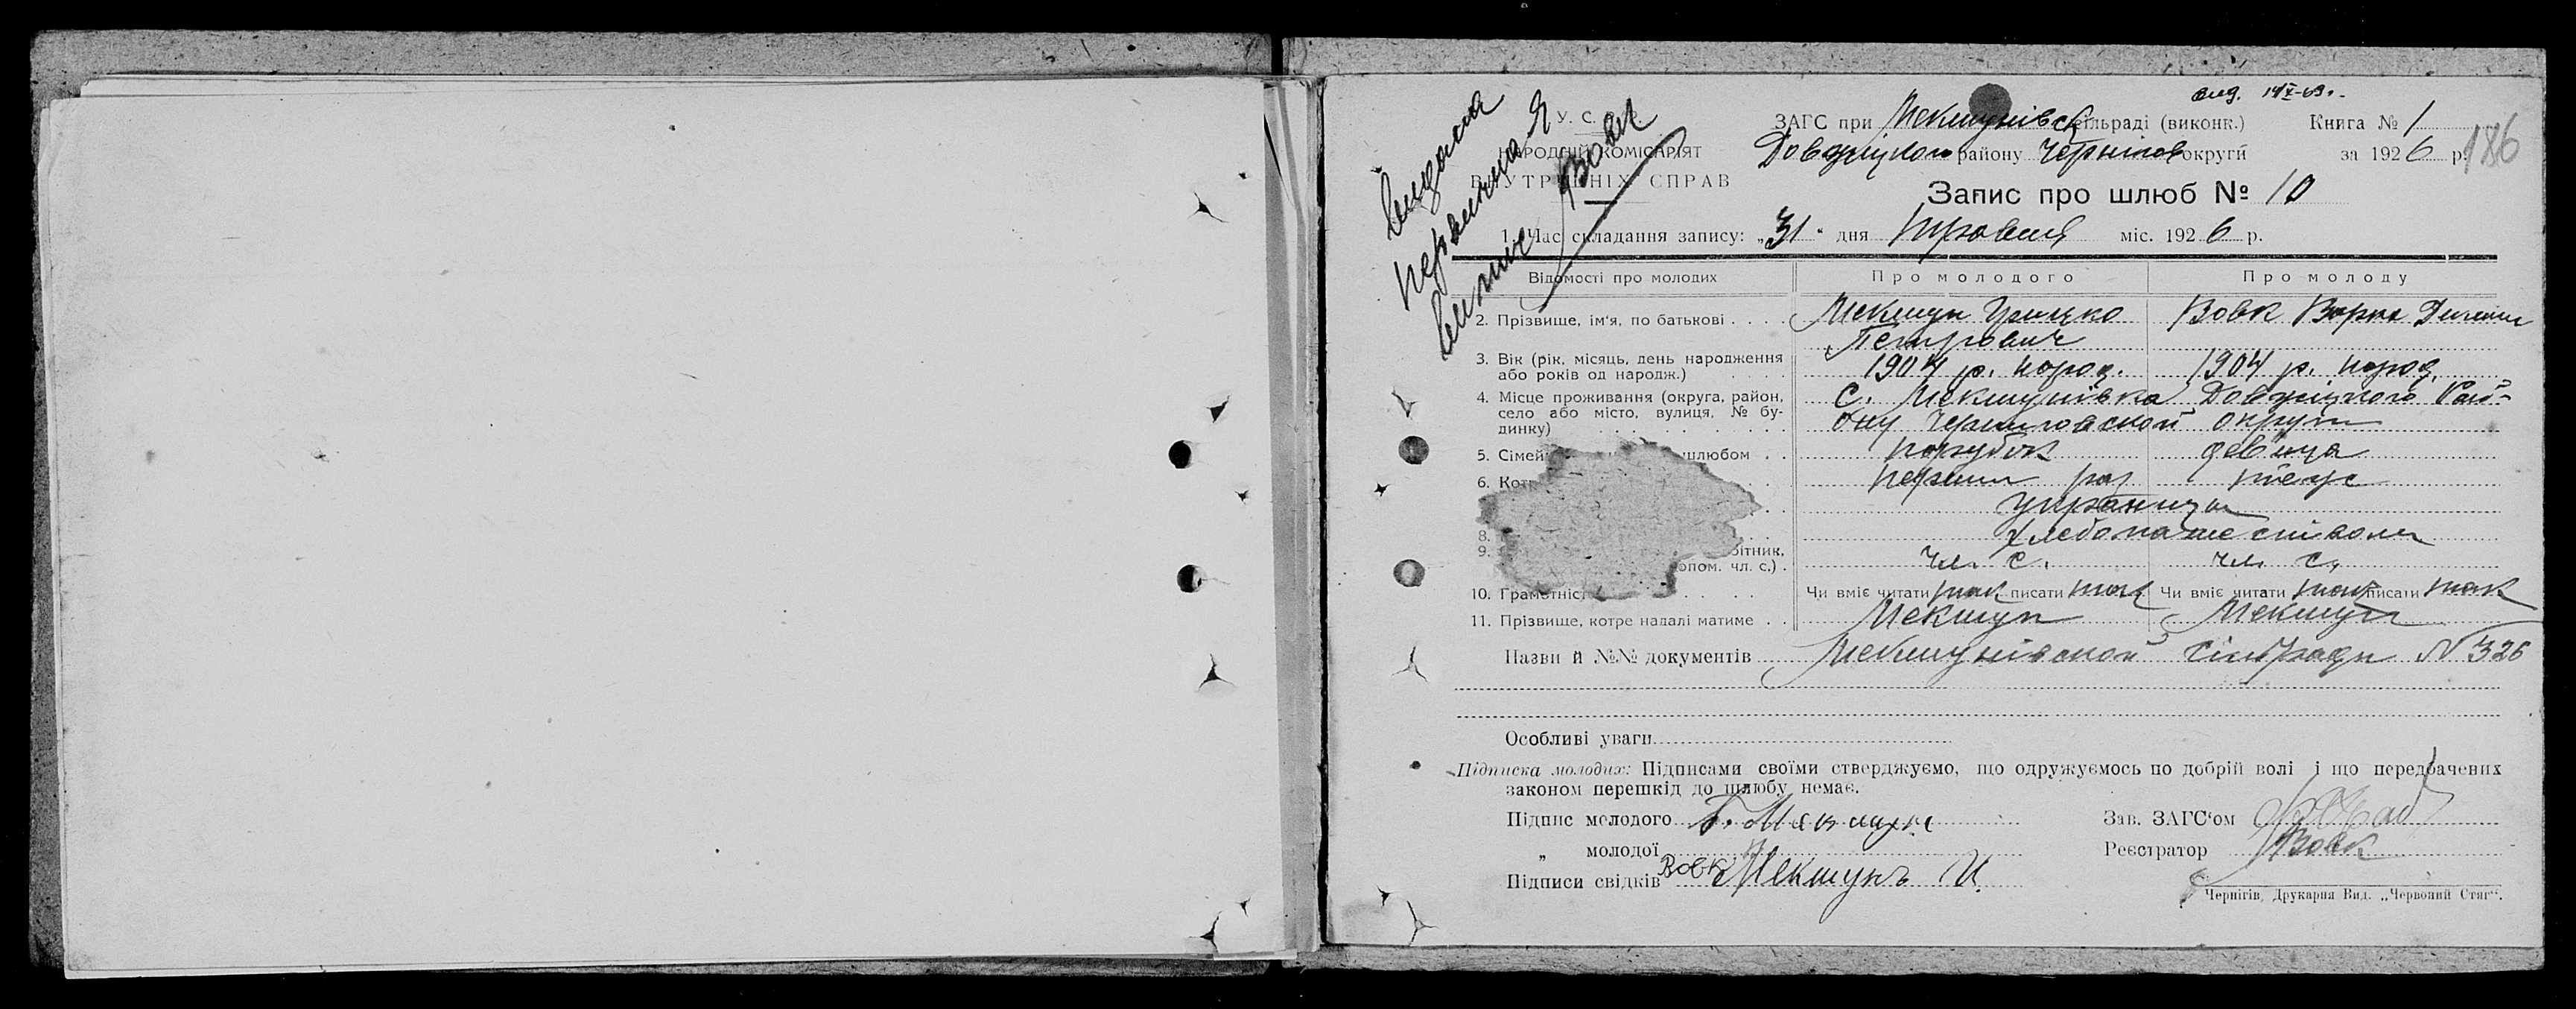 вид. 14/X-69 г.
У. С.
НАРОДНІЙ КОМІСАРІЯТ
ВНУТРІШНІХ СПРАВ
видана
первинна
Вовк
ЗАГС при Мекшунівск сільраді (виконк.) Книга № 1
району Чернігов округи за 1926 р. 186
Запис про шлюб № 10
1. Час складання запису: „31" дня травня міс. 1926 р.
Відомості про молодих Про молодого Про молоду
2. Прізвище, ім'я, по батькові . . . . Мекшун Грицко Вовк Варка
Петрович
3. Вік (рік, місяць, день народження
або років од народж.) 1904 р. народ. 1904 р. народ.
4. Місце проживання (округа, район, с. Мекшунівка Довжицкого Рай-
село або місто, вулиця, № бу- ону Черниговской округи
динку)
5. Сімей шлюбом . . парубок девиця
6. Кот перший раз тоже
украинци
8. хлебопашеством
9. бітник,
опом. чл. с.) . чл. с. чл. с.
10. Грамотніс . . . . Чи вміє читати так писати так Чи вміє читати так писати так
11. Прізвище, котре надалі матиме . . Мекшун Мекшун
Назви й №№ документів Мекшунівской сільради № 326
Особливі уваги
Підписка молодих: Підписами своїми стверджуємо, що одружуємось по добрій волі і що передбачених
законом перешкід до шлюбу немає.
Підпис молодого Г. Зав. ЗАГС'ом
„ молодої Вовк Реєстратор Вовк
Підписи свідків Мекшунъ И.
Чернігів, Друкарня Вид. „Червоний Стяг".